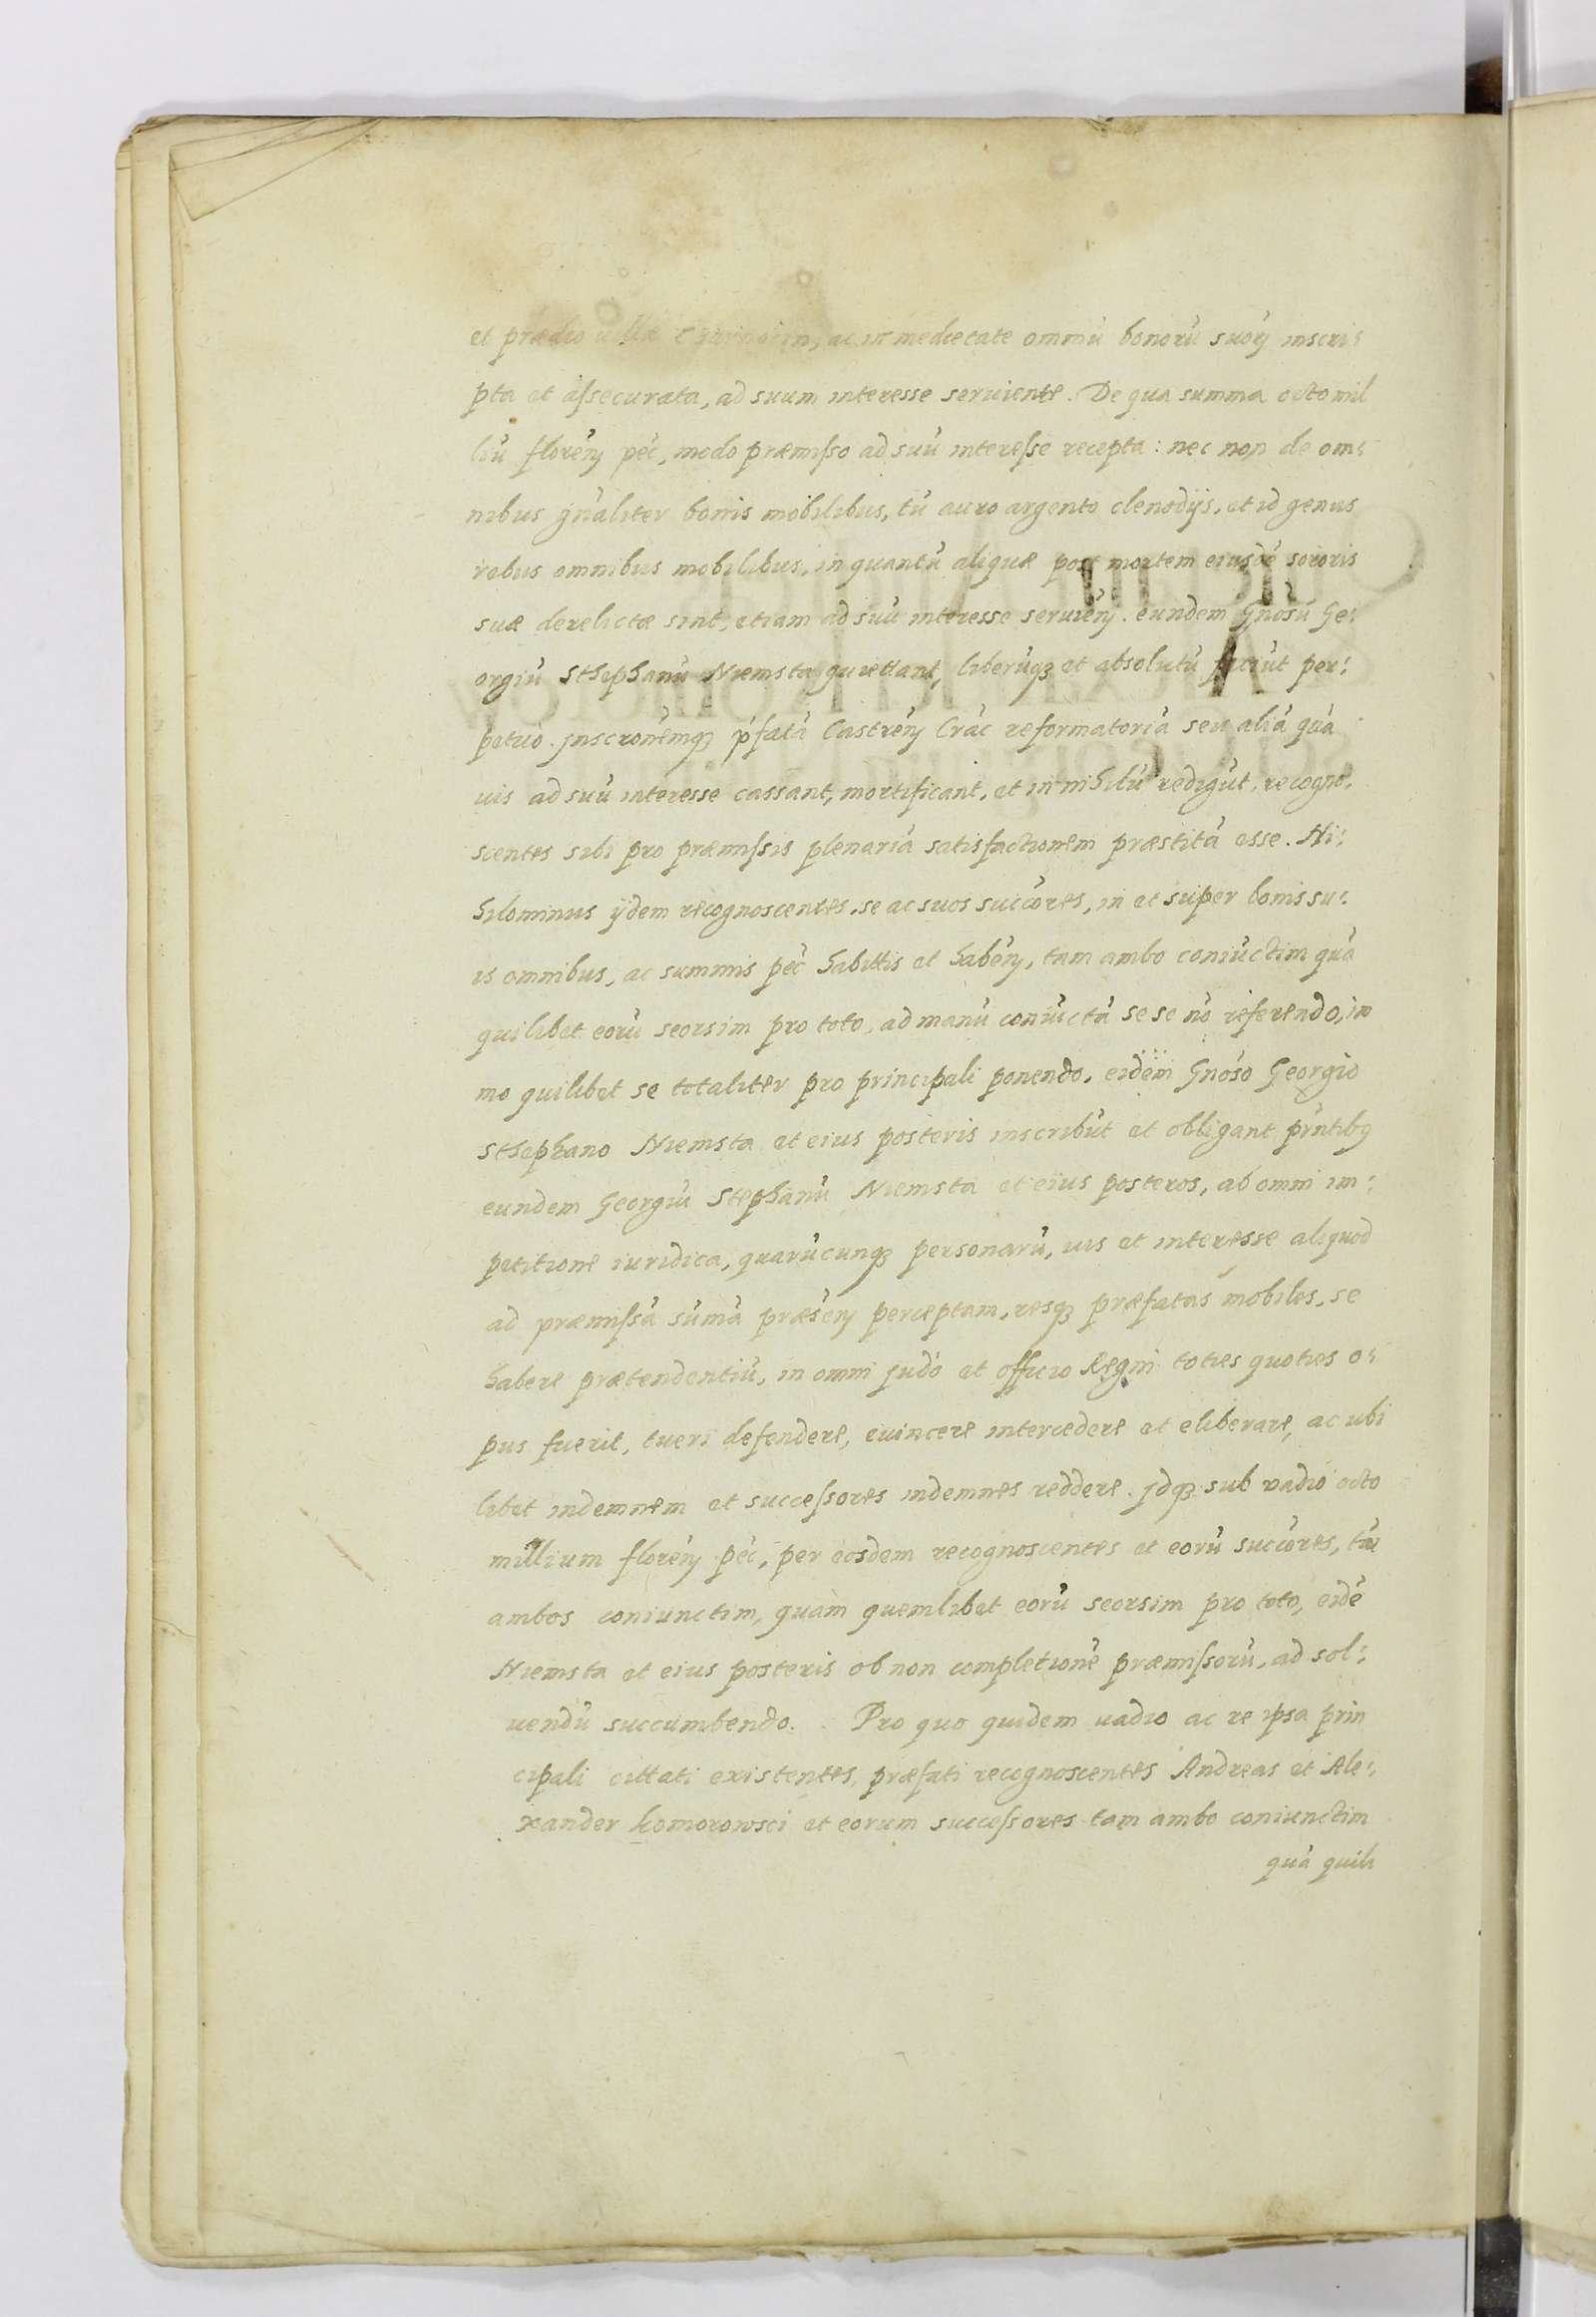 et prædio villæ ac in medietate omniù bonorù suorȝ inscri:
pta et aſsecurata, ad suum interesse seruiente. De qua summa octo mil
liù florèȝ pèc, modo præmiſso ad suù intereſse recepta: nec non de om:
nibus gñaliter bonis mobilibus, tù auro argento clenodÿs, et id genus
rebus omnibus mobilibus, in quantù aliquæ post mortem eiusdè sororis
suæ derelictæ sint, etiam ad suù interesse seruièȝ. eundem Gnòsù Ge:
orgiù Sthephanù Niemsta quiettant, liberùqȝ et absolutù faciùt per:
petuò. Jnscronèmqȝ p̀fatà Castrèȝ Cràc reformatorià seu alià quà
uis ad suù interesse cassant, mortificant, et in nihilù redigùt, recogno.
scentes sibi pro præmiſsis plenarià satisfactionem præstità esse. Ni:
hilominus ÿdem recognoscentes, se ac suos succòres, in et super bonis su:
is omnibus, ac summis pèc habittis et habèȝ, tam ambo coniùctim quà
quilibet eorù seorsim pro toto, ad manù coniùctà se se nò referendo, im
mo quilibet se totaliter pro principali ponendo, eidem Gnòso Georgio
Sthephano Niemsta et eius posteris inscribùt et obligant prǹtibȝ
eundem Georgiù Stephanù Niemsta et eius posteros, ab omni im:
petitione iuridica, quarùcunqȝ personarù, ius et interesse aliquod
ad præmiſsà sùmà præsèȝ perceptam, resqȝ præfatas mobiles, se
habere prætendentiù, in omni judò et officio Regni toties quoties o:
pus fuerit, tueri defendere, euincere intercedere et eliberare, ac ubi
libet indemnem et succeſsores indemnes reddere. jdqȝ sub vadio octo
millium florèȝ pèc, per eosdem recognoscentes et eorù succòres, tàm
ambos coniunctim, quàm quemlibet eorù seorsim pro toto, eidè
Niemsta et eius posteris ob non completionè præmiſsorù, ad sol:
uendù succumbendo. Pro quo quidem uadio ac re ipsa prin
cipali cittati existentes, præfati recognoscentes Andreas et Ale:
xander Komorowsci et eorum succeſsores tam ambo coniunctim
quà quili